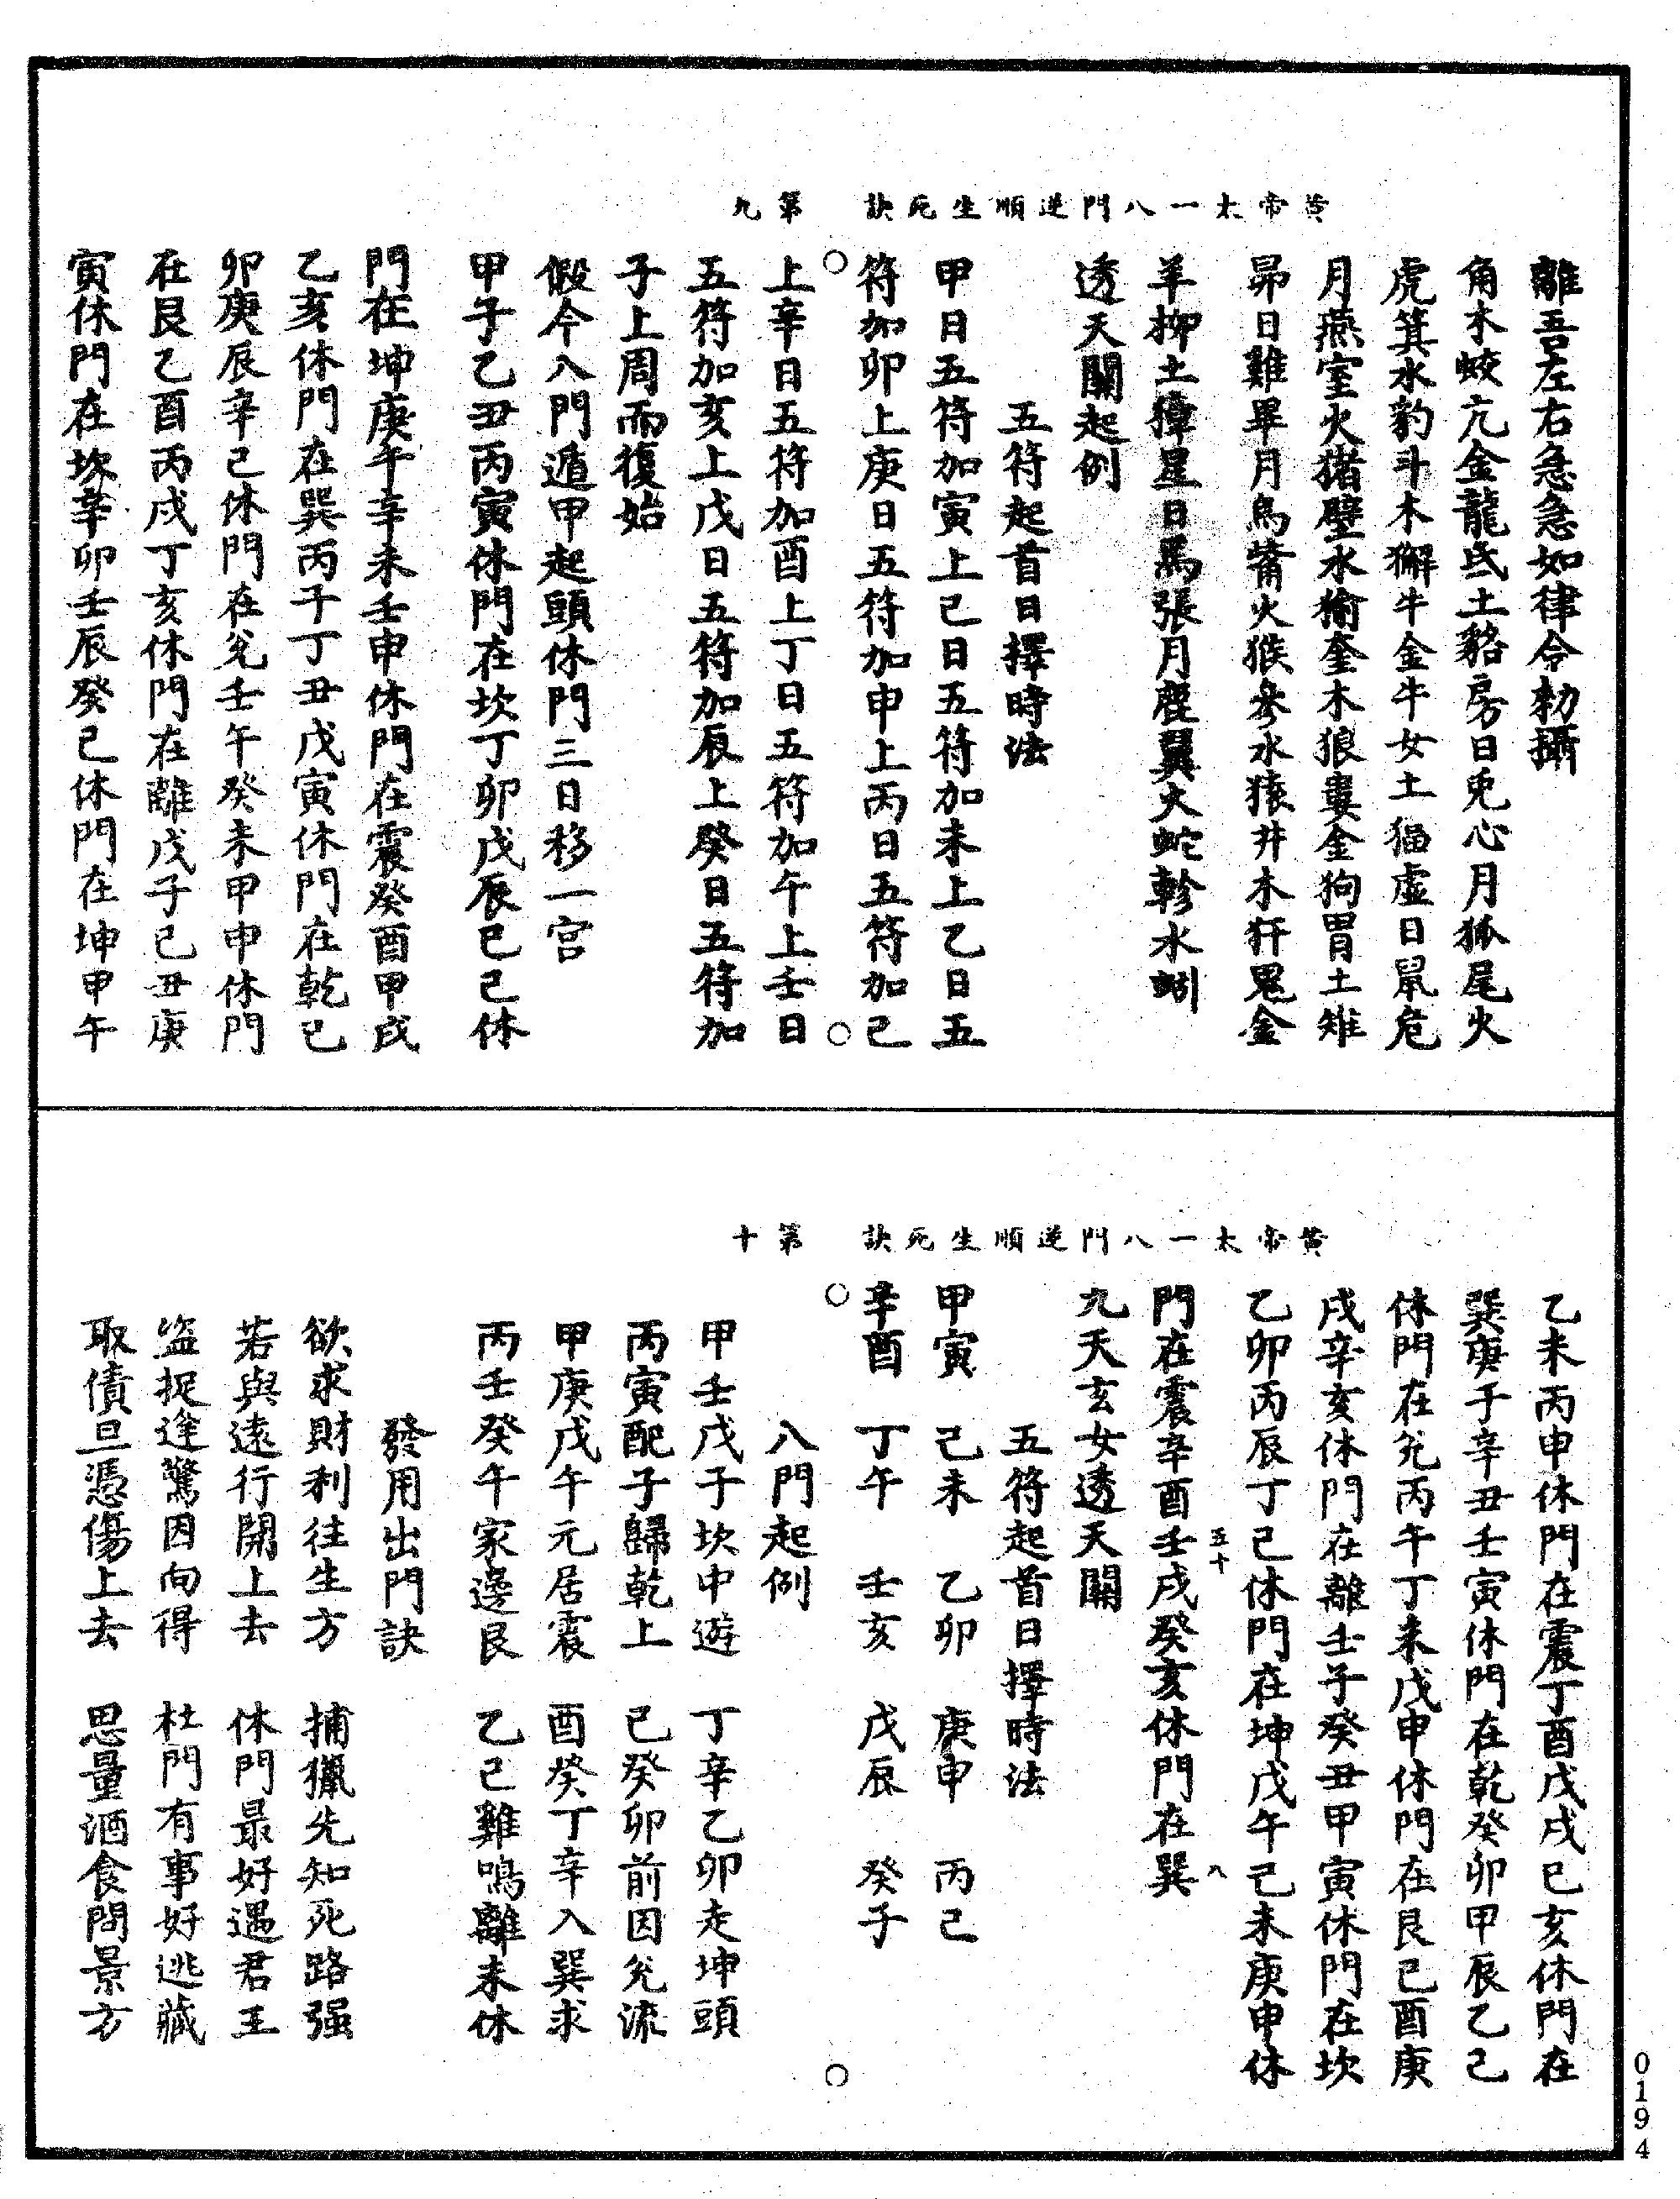 黃帝太一八門逆順生死訣　第九
離吾左右急急如律令勑攝
角木蛟亢金龍氐土貉房日兎心月狐尾火
虎箕水豹斗木獬牛金牛女土蝠虛日鼠危
月燕室火猪壁水㺄奎木狼婁金狗胃土雉
昴日雞畢月烏觜火猴參水猿井木犴鬼金
羊柳土獐星日馬張月鹿翼火蛇軫水蚓
透天關起例
五符起首日擇時法
甲日五符加寅上己日五符加未上乙日五
符加卯上庚日五符加申上丙日五符加巳
上辛日五符加酉上丁日五符加午上壬日
五符加亥上戊日五符加辰上癸日五符加
子上周而復始
假令八門遁甲起頭休門三日移一宮
甲子乙丑丙寅休門在坎丁卯戊辰己巳休
門在坤庚午辛未壬申休門在震癸酉甲戌
乙亥休門在巽丙子丁丑戊寅休門在乾己
卯庚辰辛巳休門在兊壬午癸未甲申休門
在艮乙酉丙戌丁亥休門在離戊子己丑庚
寅休門在坎辛卯壬辰癸巳休門在坤甲午
黃帝太一八門逆順生死訣　第十
乙未丙申休門在震丁酉戊戌己亥休門在
巽庚子辛丑壬寅休門在乾癸卯甲辰乙巳
休門在兊丙午丁未戊申休門在艮己酉庚
戌辛亥休門在離壬子癸丑甲寅休門在坎
乙卯丙辰丁巳休門在坤戊午己未庚申休
五十　八
門在震辛酉壬戌癸亥休門在巽
九天玄女透天關
五符起首日擇時法
甲寅　己未　乙卯　庚申　丙巳
辛酉　丁午　壬亥　戊辰　癸子
八門起例
甲壬戊子坎中遊　丁辛乙卯走坤頭
丙寅配子歸乾上　己癸卯前因兊流
甲庚戊午元居震　酉癸丁辛入巽求
丙壬癸午家邊艮　乙巳雞鳴離未休
發用出門訣
欲求財利往生方　捕獵先知死路强
若與遠行開上去　休門最好遇君王
盜捉逢驚因向得　杜門有事好逃藏
取債旦憑傷上去　思量酒食問景方
0194